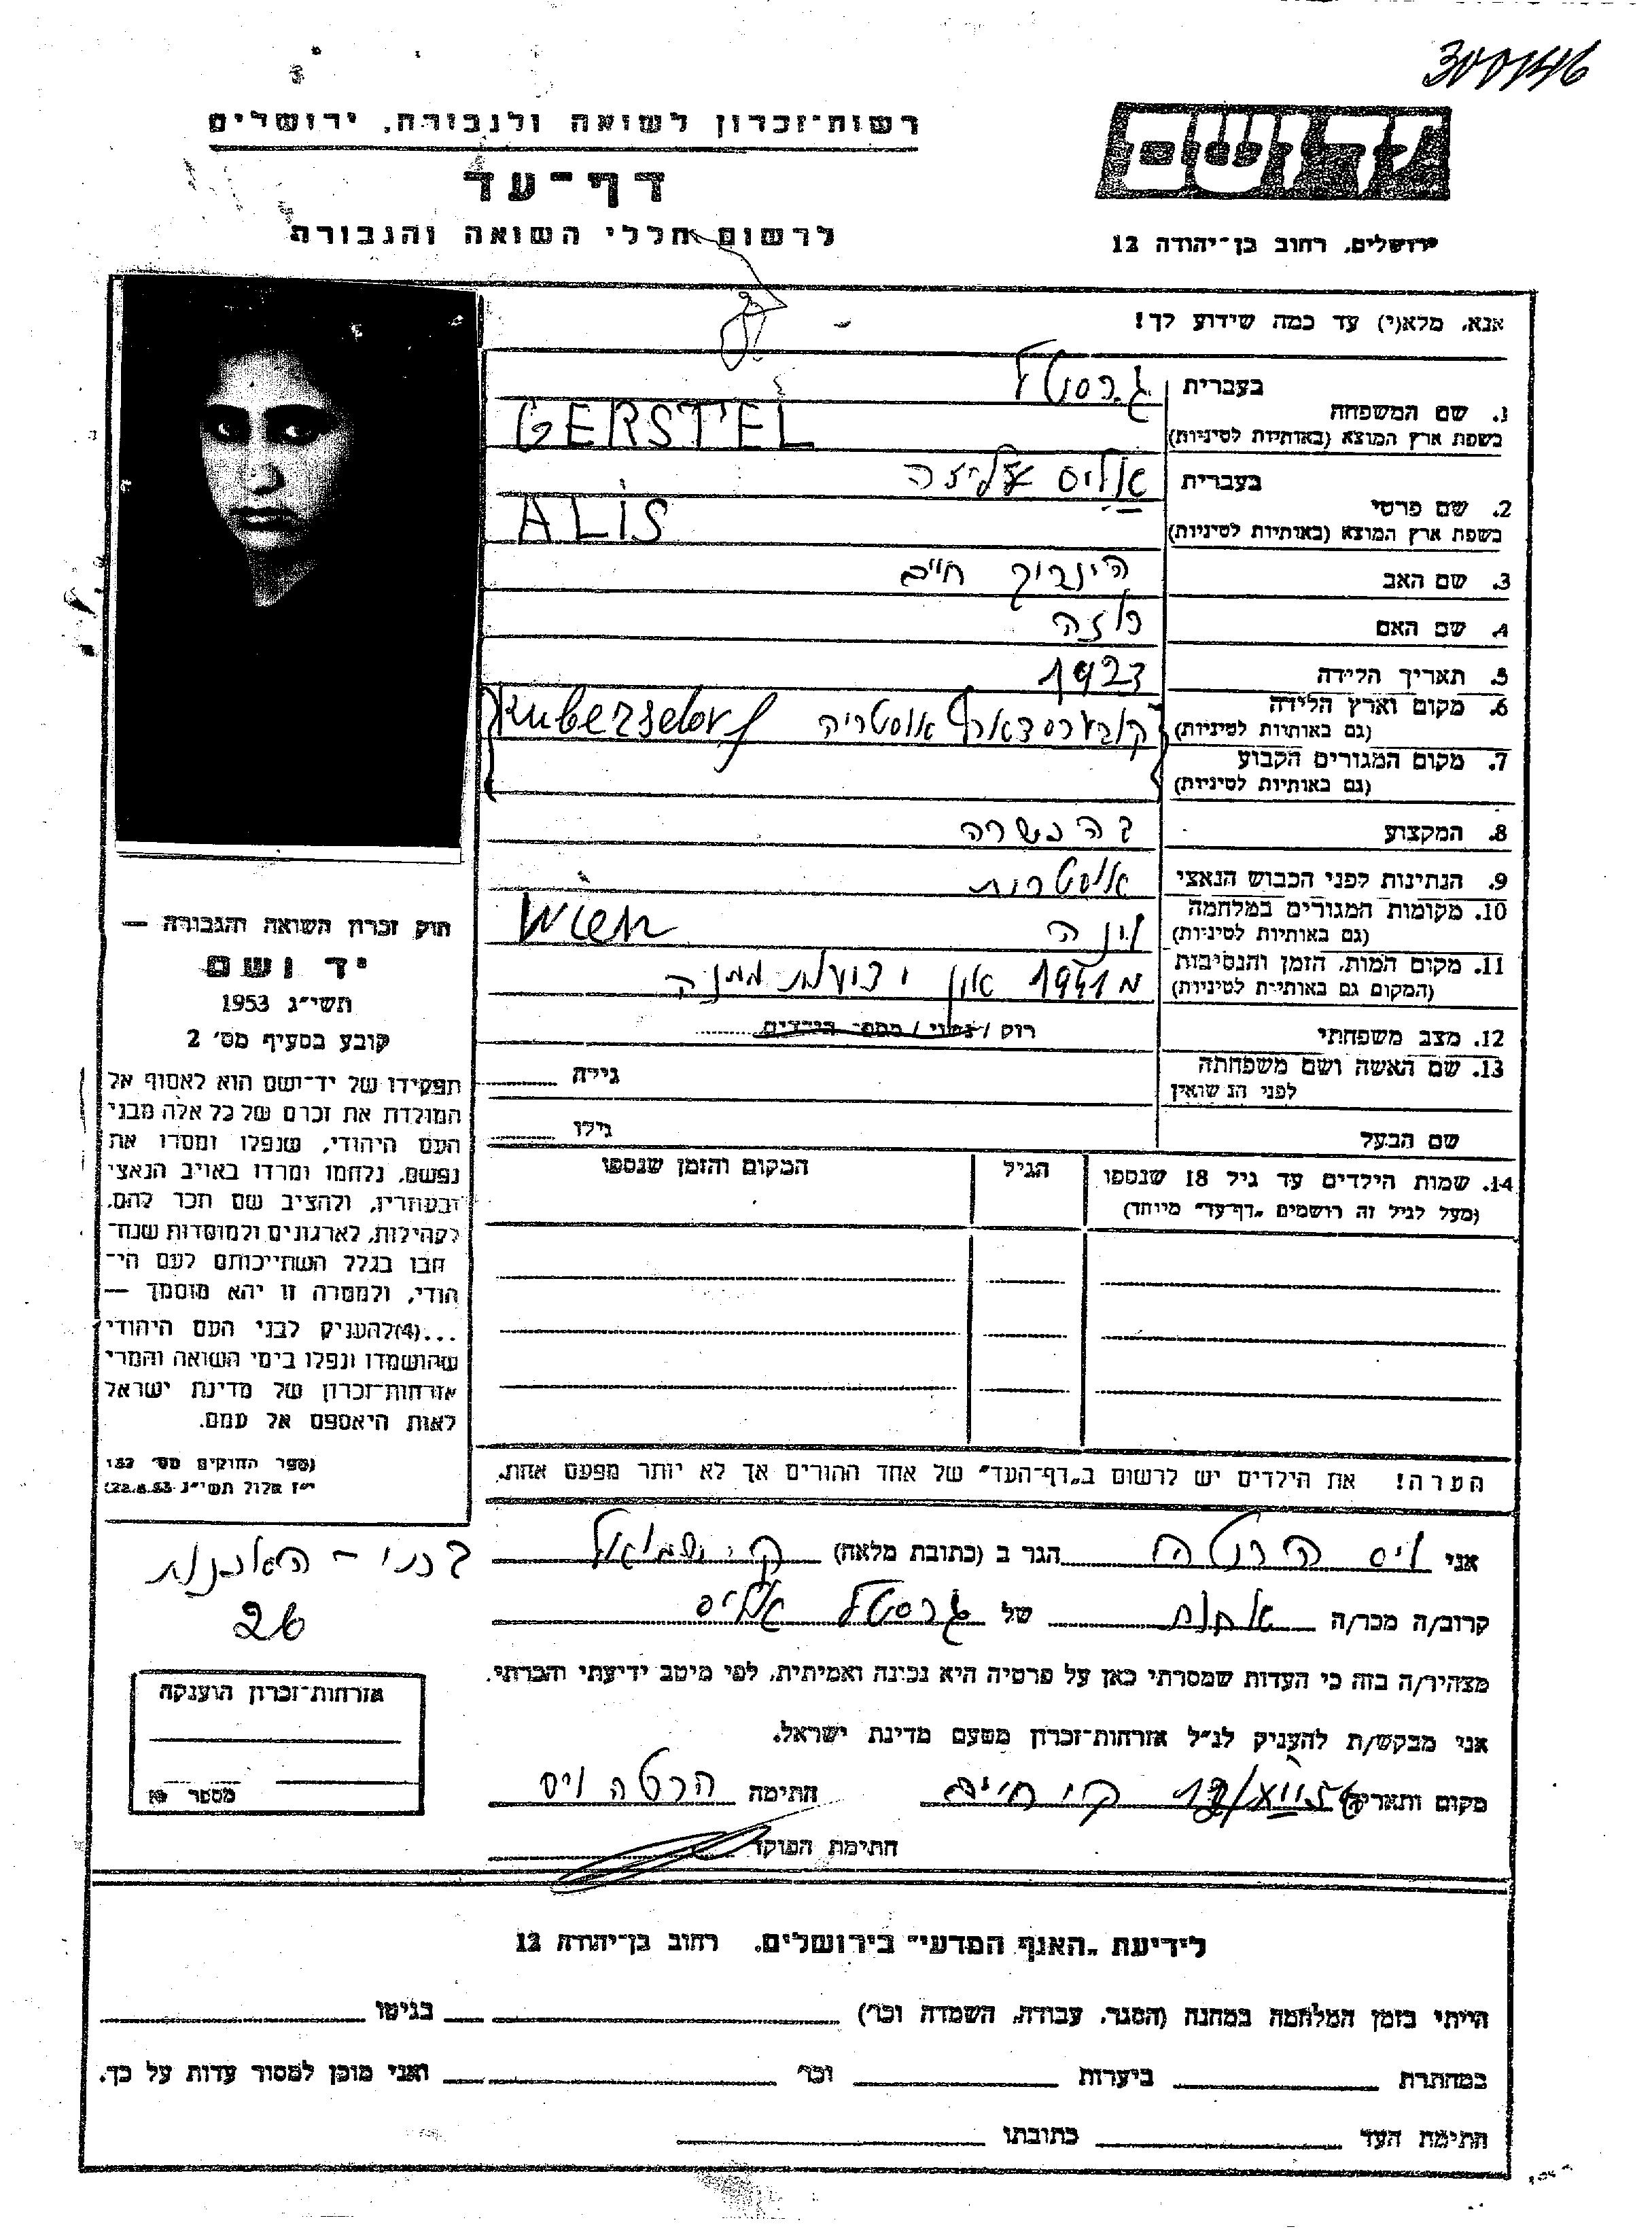 300146
רשות־זכרון לשואה ולגבורה, ירושלים
דף־עד
לרשום חללי השואה והגבורה
יד ושם
ירושלים, רחוב בן־יהודה 12
אנא, מלא(י) עד כמה שידוע לך!
1. שם המשפחה
בעברית גרסטל
בשפת ארץ המוצא (באותיות לטיניות) GERSTEL
2. שם פרטי
בעברית אליס עליזה
בשפת ארץ המוצא (באותיות לטיניות) ALIS
3. שם האב הינריך חיים
4. שם האם רוזה
5. תאריך הלידה 1923
6. מקום וארץ הלידה
(גם באותיות לטיניות) קובערסדארף אוסטריה Kubersdorf
7. מקום המגורים הקבוע
(גם באותיות לטיניות)
8. המקצוע בהכשרה
9. הנתינות לפני הכבוש הנאצי אוסטרית
10. מקומות המגורים במלחמה
(גם באותיות לטיניות) וינה Wien
11. מקום המות, הזמן והנסיבות
(המקום גם באותיות לטיניות) מ 1941 אין ידועות ממנה
12. מצב משפחתי רוק / נשוי / מספר הילדים
13. שם האשה ושם משפחתה
לפני הנשואין
גילה
שם הבעל
גילו
14. שמות הילדים עד גיל 18 שנספו
(מעל לגיל זה רושמים „דף־עד" מיוחד)
הגיל
המקום והזמן שנספו
הערה! את הילדים יש לרשום ב„דף־העד" של אחד ההורים אך לא יותר מפעם אחת.
חוק זכרון השואה והגבורה —
יד ושם
תשי"ג 1953
קובע בסעיף מס' 2
תפקידו של יד־ושם הוא לאסוף אל
המולדת את זכרם של כל אלה מבני
העם היהודי, שנפלו ומסרו את
נפשם, נלחמו ומרדו באויב הנאצי
ובעוזריו, ולהציב שם וזכר להם,
לקהילות, לארגונים ולמוסדות שנח־
רבו בגלל השתייכותם לעם הי־
הודי, ולמטרה זו יהא מוסמך —
...(4) להעניק לבני העם היהודי
שהושמדו ונפלו בימי השואה והמרי
אזרחות־זכרון של מדינת ישראל
לאות היאספם אל עמם.
(ספר החוקים מס' 132
י"ז אלול תשי"ג 28.8.53)
אני ויס הרטה הגר ב (כתובת מלאה) ק. שמואל
26
קרוב/ה מכר/ה אחות של גרסטל אליס
מצהיר/ה בזה כי העדות שמסרתי כאן על פרטיה היא נכונה ואמיתית, לפי מיטב ידיעתי והכרתי.
אני מבקש/ת להעניק לנ"ל אזרחות־זכרון מטעם מדינת ישראל.
מקום ותאריך ק. חיים חתימה הרטה ויס
חתימת הפוקד
אזרחות־זכרון הוענקה
מספר
לידיעת „האגף המדעי" בירושלים, רחוב בן־יהודה 12
הייתי בזמן המלחמה במחנה (הסגר, עבודה, השמדה וכו') בגיטו
במחתרת ביערות וכו' ואני מוכן למסור עדות על כך.
חתימת העד כתובתו